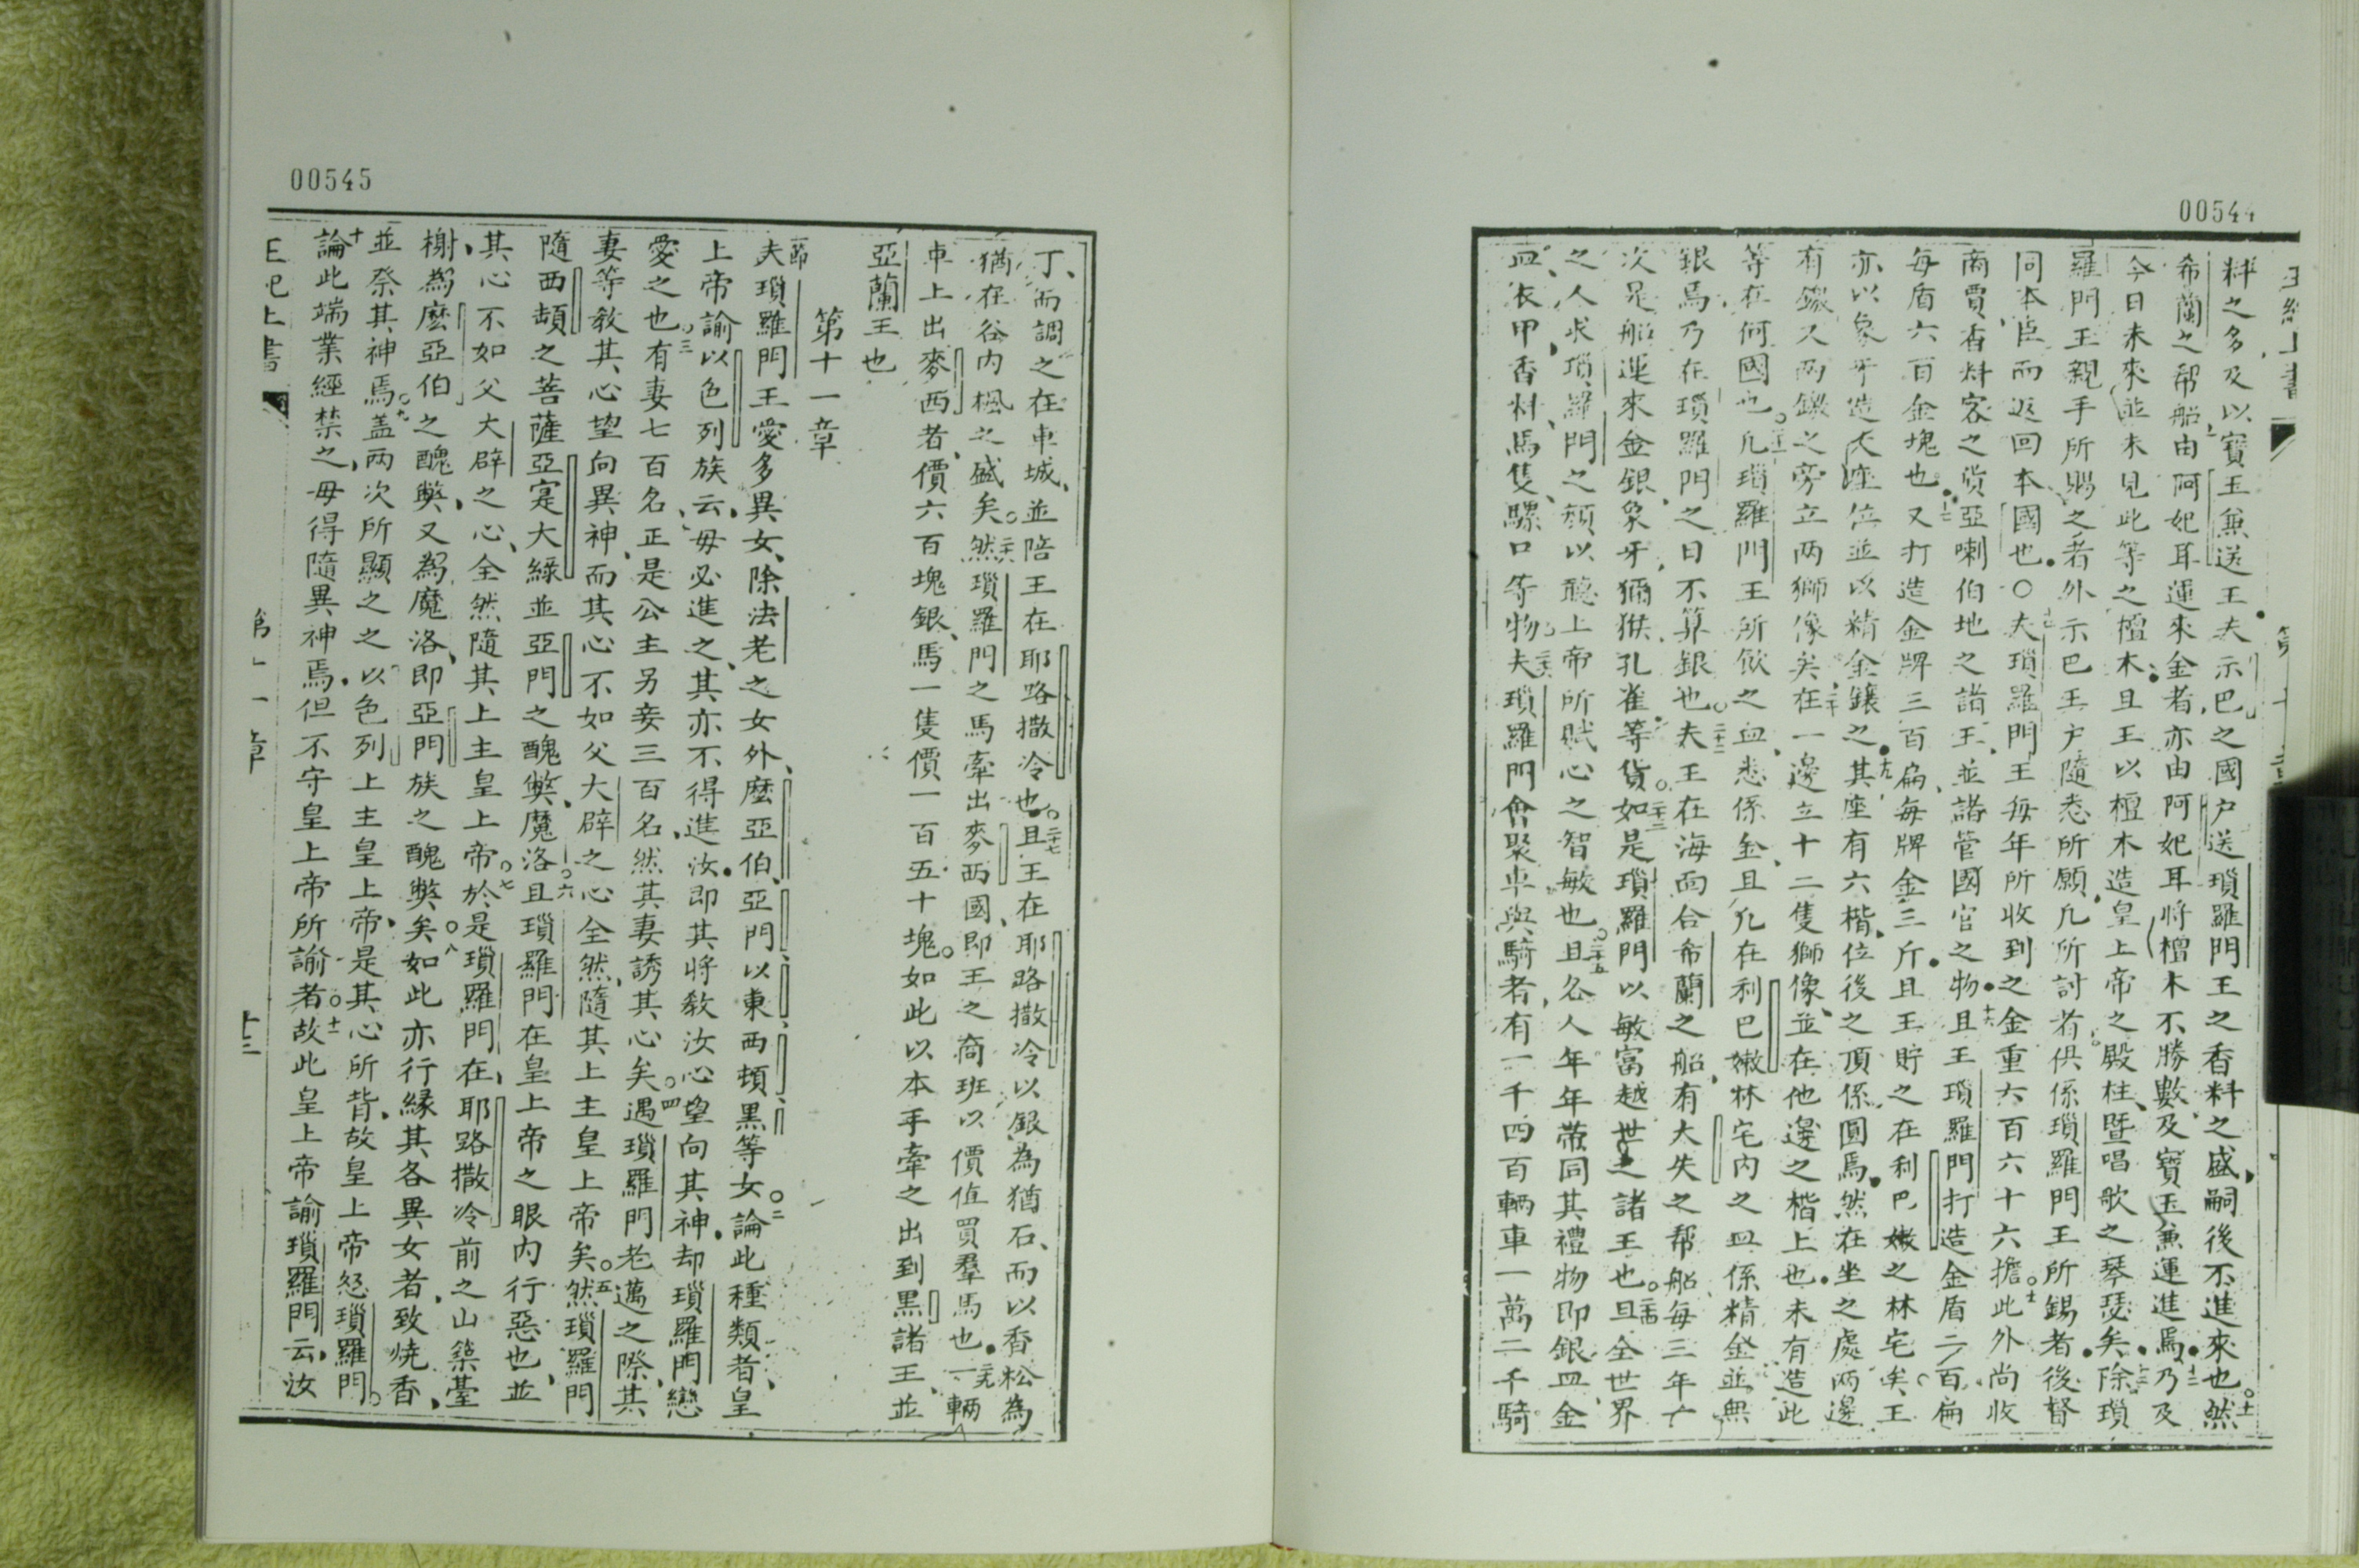 00544
料之多及以寶玉兼送王夫示巴之國户送瑣羅門王之香料之盛嗣後不進來也十然
希蘭之帮船由阿妃耳運來金者亦由阿妃耳將檀木不勝數及寶玉兼運進焉十二乃及
今日未來並未見此等之檀木且王以檀木造皇上帝之殿柱暨唱歌之琴瑟矣十三除瑣
羅門王親手所賜之者外示巴王户隨悉所願凡所討者俱係瑣羅門王所錫者後督
同本臣而返回本國也〇夫瑣羅門王每年所收到之金重六百六十六擔此外尚收
商賈香料客之貨亞喇伯地之諸王並諸管國官之物十六且王瑣羅門打造金盾二百扁
每盾六百金塊也又打造金牌三百扁每牌金三斤且王貯之在利巴嫩之林宅矣王
亦以象牙造大座位並以精金鑲之十九其座有六楷位後之頂係圓焉然在坐之處兩邊
有鐓又两鐓之旁立两獅像矣二十在一邊立十二隻獅像並在他邊之楷上也未有造此
等在何國也凡瑣羅門王所飲之皿悉係金且凡在利巴嫩林宅内之皿係精金並無
銀焉乃在瑣羅門之日不算銀也二十二夫王在海面合希蘭之船有大失之帮船每三年亡
次是船運來金銀象牙獼猴孔雀等貨二十三如是瑣羅門以敏富越世之諸王也二十四且全世界
之人求瑣羅門之頟以聽上帝所賦心之智敏也二十五且各人年年帶同其禮物即銀皿金
皿衣甲香料馬隻騾口等物夫瑣羅門會聚車與騎者有一千四百輛車一萬二千騎
00545
丁而調之在車城並陪王在耶路撒冷也二十七且王在耶路撒冷以銀為猶石而以香松為
猶在谷内楓之盛矣然瑣羅門之馬牽出麥西國即王之商班以價值買羣馬也二十九一輛
車上出麥西者價六百塊銀馬一隻價一百五十塊如此以本手牽之出到黑諸王並
亞蘭王也
第十一章
節夫瑣羅門王愛多異女除法老之女外麼亞伯亞門以東西頓黑等女二論此種類者皇
上帝諭以色列族云毋必進之其亦不得進汝即其將教汝心望向其神却瑣羅門戀
愛之也三有妻七百名正是公主另妾三百名然其妻誘其心矣四遇瑣羅門老邁之際其
妻等教其心望向異神而其心不如父大辟之心全然隨其上主皇上帝矣五然瑣羅門
隨西頓之菩薩亞寔大綠並亞門之醜獘魔洛六且瑣羅門在皇上帝之眼内行惡也並
其心不如父大辟之心全然隨其上主皇上帝七於是瑣羅門在耶路撒冷前之山築臺
榭為麼亞伯之醜獘又為魔洛即亞門族之醜獘矣八如此亦行緣其各異女者致燒香
並祭其神焉九盖两次所顯之之以色列上主皇上帝是其心所背故皇上帝怒瑣羅門
十論此端業經禁之毋得隨異神焉但不守皇上帝所諭者十一故此皇上帝諭瑣羅門云汝